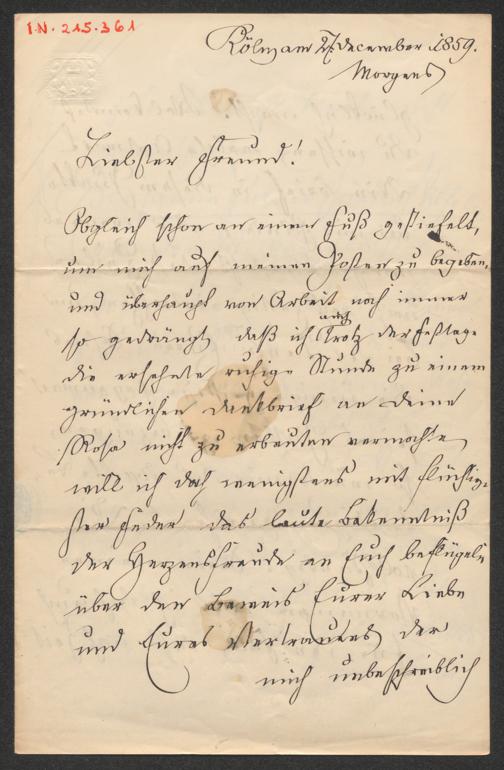 I.N. 215.361
Köln am 27. December 1859.
Morgens
Liebster Freund!
Obgleich schon an einen Fuß gestiefelt,
um mich auf meinen Posten zu begeben,
und überhaupt von Arbeit noch immer
so gedrängt, daß ich auch Trotz der Festtage
die ersehnte ruhige Stunde zu einem
gründlichen Dankbrief an Deine
Rosa nicht zu erbeuten vermochte,
will ich doch wenigstens mit flüchtig-
ster Feder das laute Bekenntniß
der Herzensfreude an Euch beflügeln
über den Beweis Eurer Liebe
und Eures Vertrauens, der
mich unbeschreiblich